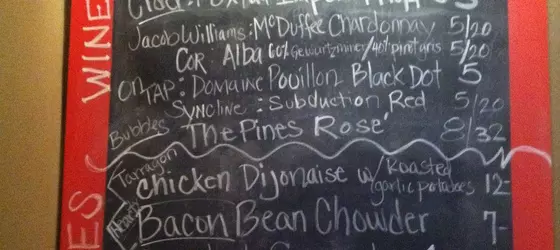 WINE
Jacob Williams: McDuffee Chardonnay 5/20
Cor: Alba 60% Gewurtzminer/40% pinot gris 5/20
ON TAP: Domaine Pouillon Black Dot 5
Syncline: Subduction Red 5/20
Bubbles The Pines Rosé 8/32
Tarragon
Chicken Dijonaise w/ Roasted
garlic potatoes 12-
Bacon Bean Chowder 7-